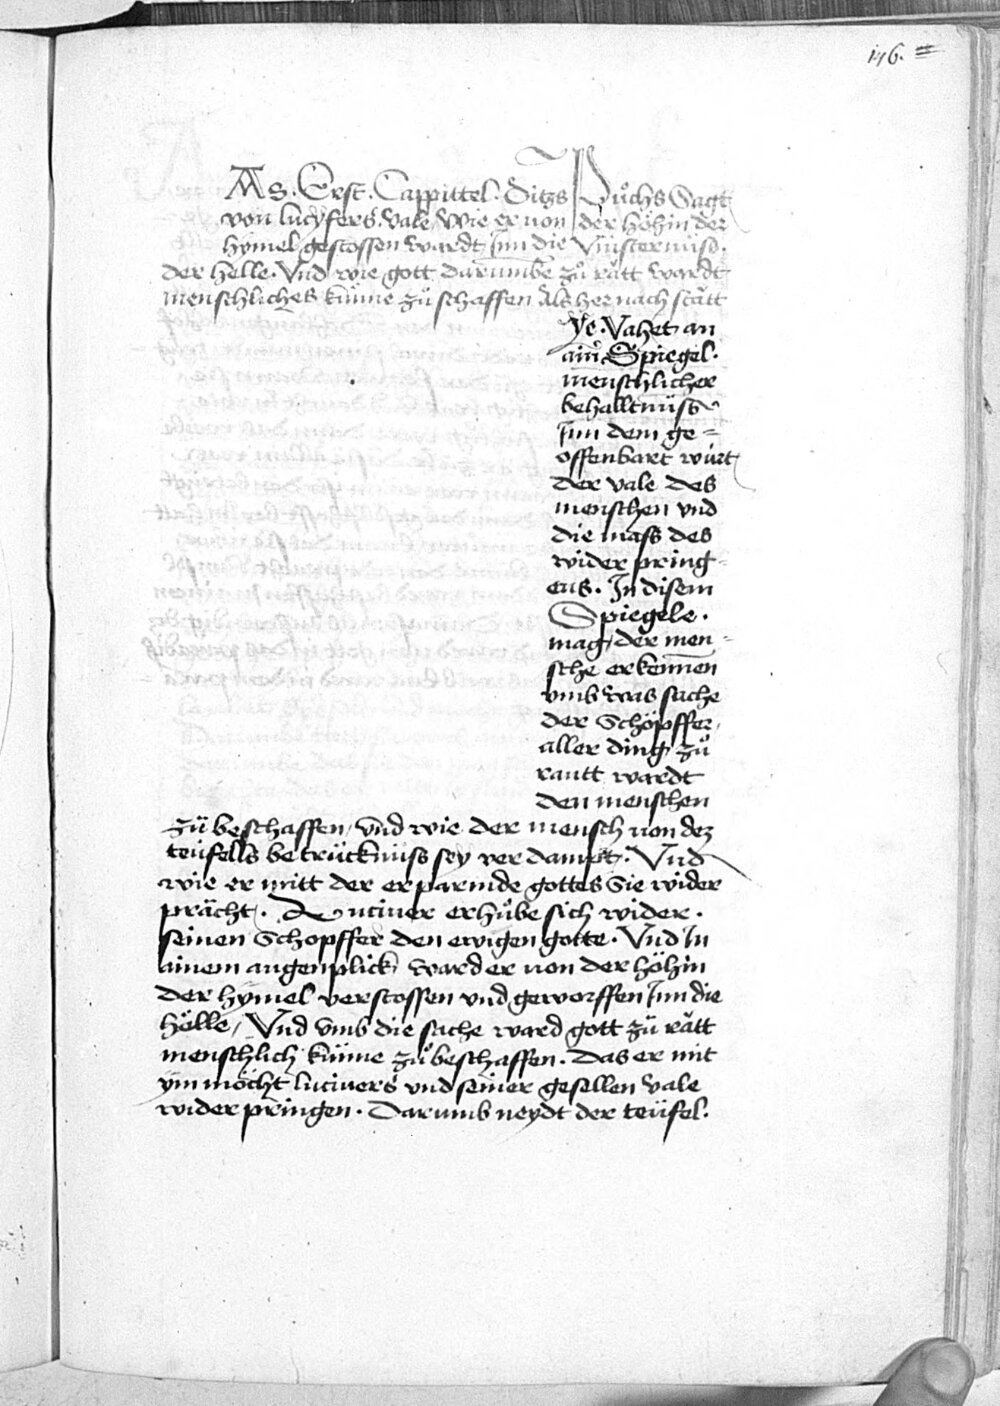 146.
As. Erst. Cappittel. Ditzs Půchs Sagt
von lucyfers. vale wie er von der höhin der
hymel gestossen wardt Jnn die vinsternüsß.
der helle. Vnd wie gott darumbe zů rått wardt
menschliches künne zů schaffen Als her nach stått
Ye. Vahet an
ain Spiegel.
menschlicher
behalltnüss
Jnn dem ge=
offenbart würt
der vale des
menschen vnd
die mass des
wider pring=
ens. Jn disem
Spiegele.
mag der men=
sche erkennen
vmb was sache
der Schöpffer
aller ding zů
rautt wardt
den menschen
zü beschaffen / vnd wie der mensch von dez
teüfells betrücknüss sey verdampt. Vnd
wie er mitt der erparmde gottes Sie wider
prächt. Luciuer erhůbe sich wider.
seinen Schopffer den ewigen gotte. Vnd Jn
ainem augenplick ward er von der höhin
der hymel verstossen vnd geworffen Jnn die
hölle / Vnd vmb die sache ward gott zü rått
menschlich künne zů beschaffen. Das er mit
ym möcht luciuers vnd seiner gesellen vale
wider pringen. Darumb neydt der teüfel.